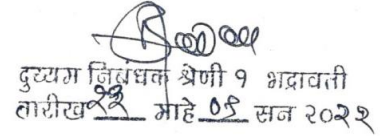 दुय्यम निबंधक श्रेणी १ भद्रावती
तारीख २३ माहे ०९ सन २०२२